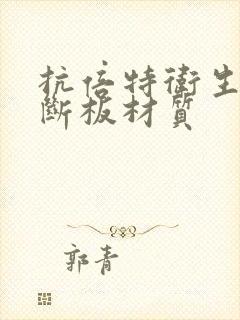 抗倍特衛生
斷板材質
郭青